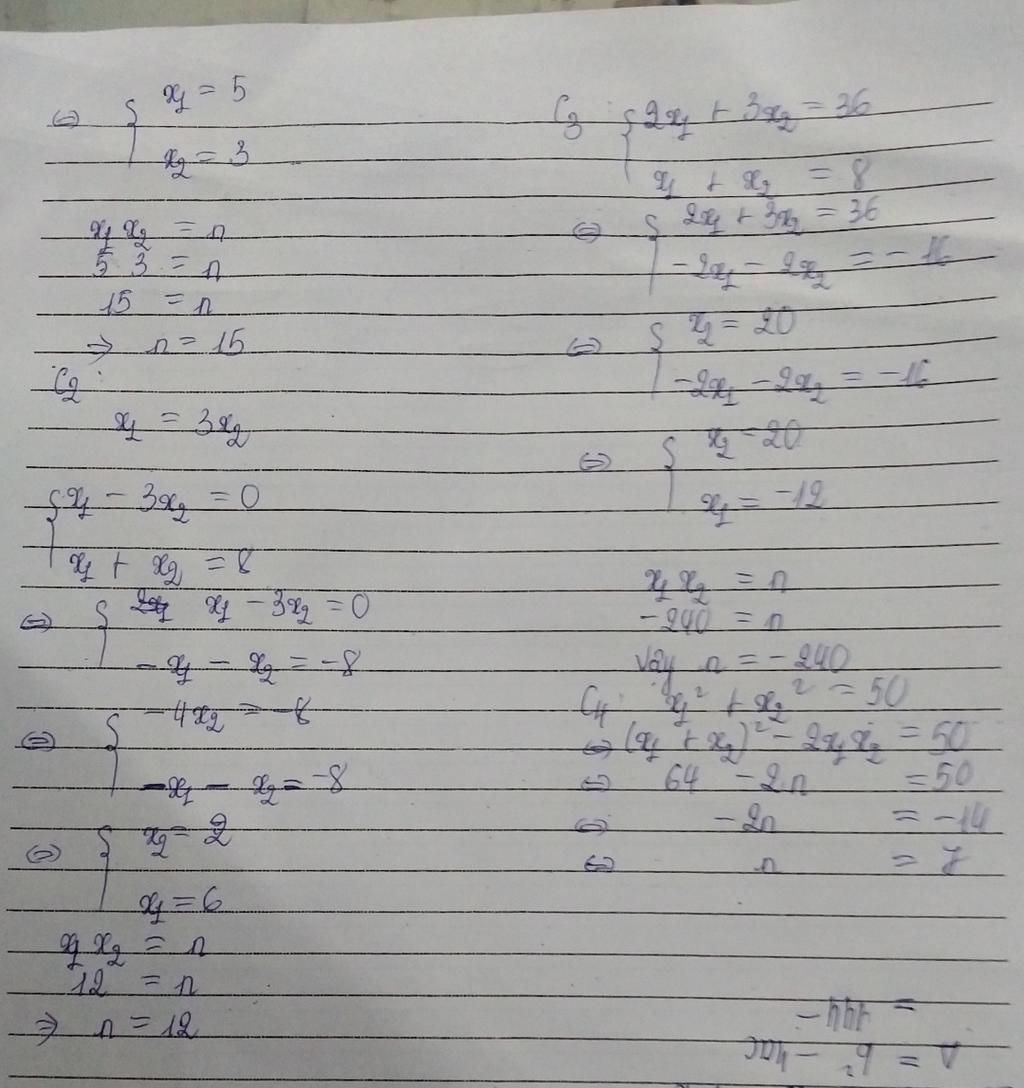 ⇔ { x₁ = 5
x₂ = 3
x₁ x₂ = n
5 3 = n
15 = n
⇒ n = 15
C₂ :
x₁ = 3x₂
{ x₁ - 3x₂ = 0
x₁ + x₂ = 8
⇔ { x₁ - 3x₂ = 0
-x₁ - x₂ = -8
⇔ { -4x₂ = -8
-x₁ - x₂ = -8
⇔ { x₂ = 2
x₁ = 6
x₁ x₂ = n
12 = n
⇒ n = 12
C₃ : { 2x₁ + 3x₂ = 36
x₁ + x₂ = 8
⇔ { 2x₁ + 3x₂ = 36
-2x₁ - 2x₂ = -16
⇔ { x₂ = 20
-2x₁ - 2x₂ = -16
⇔ { x₂ = 20
x₁ = -12
x₁ x₂ = n
-240 = n
Vậy n = -240
C₄ : x₁² + x₂² = 50
⇔ (x₁ + x₂)² - 2x₁x₂ = 50
⇔ 64 - 2n = 50
⇔ -2n = -14
⇔ n = 7
Δ = b² - 4ac
= 144 -